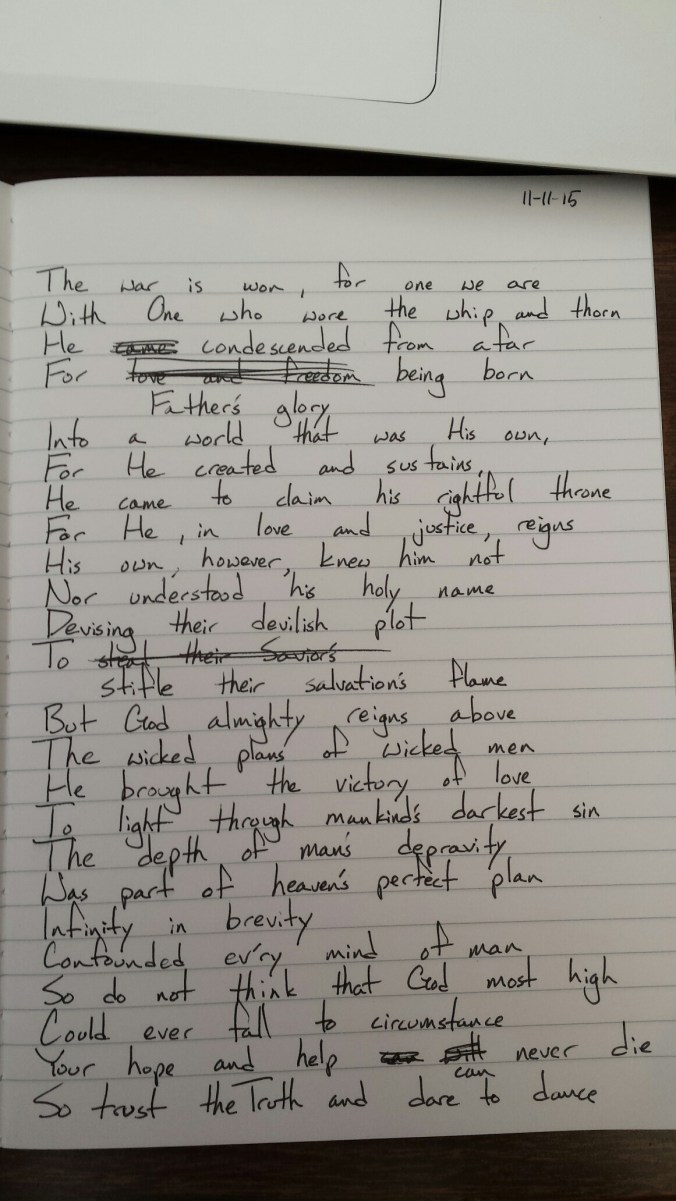 11-11-15
The war is won, for one we are
With One who wore the whip and thorn
He came condescended from afar
For love and freedom being born
Father's glory
Into a world that was His own,
For He created and sustains,
He came to claim his rightful throne
For He, in love and justice, reigns
His own, however, knew him not
Nor understood his holy name
Devising their devilish plot
To steal their Savior's
stifle their salvation's flame
But God almighty reigns above
The wicked plans of wicked men
He brought the victory of love
To light through mankind's darkest sin
The depth of man's depravity
Was part of heaven's perfect plan
Infinity in brevity
Confounded ev'ry mind of man
So do not think that God most high
Could ever fall to circumstance
Your hope and help never die
can
So trust the Truth and dare to dance